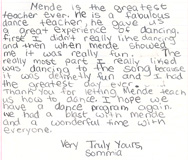 Mende is the greatest
teacher ever. He is a fabulous
dance teacher, he gave us
a great experience of dancing.
first I didn't really like dancing
and then when mende showed
me it was really fun. The
really most part I really liked
was dancing to the song because
it was definetly fun and I had
the greatest day ever.
thank you for letting Mende teach
us how to dance. I hope we
have a dance program again.
we had a blast with mende
and a wonderful time with
everyone.
Very Truly Yours,
Sommia